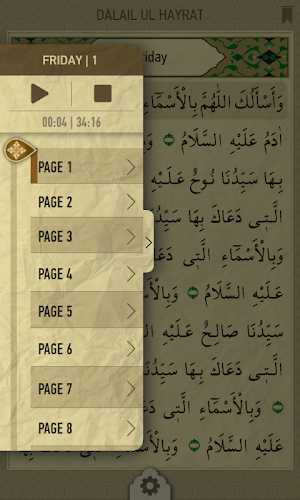 DALAIL UL HAYRAT
FRIDAY | 1
riday
00:04 | 34:16
PAGE 1
PAGE 2
PAGE 3
PAGE 4
PAGE 5
PAGE 6
PAGE 7
PAGE 8
وَأَسْأَلُكَ اللّٰهُمَّ بِالْأَسْمَآءِ
اٰدَمُ عَلَيْهِ السَّلَامُ وَبِا
بِهَا سَيِّدُنَا نُوحٌ عَلَيْهِ
الَّتِي دَعَاكَ بِهَا سَيِّدُ
وَبِالْأَسْمَآءِ الَّتِي دَعَا
عَلَيْهِ السَّلَامُ وَبِالْ
سَيِّدُنَا صَالِحٌ عَلَيْهِ ا
الَّتِي دَعَاكَ بِهَا سَيِّدُنَا
وَبِالْأَسْمَآءِ الَّتِي دَعَاكَ
عَلَيْهِ السَّلَامُ وَبِالْأَسْمَآءِ